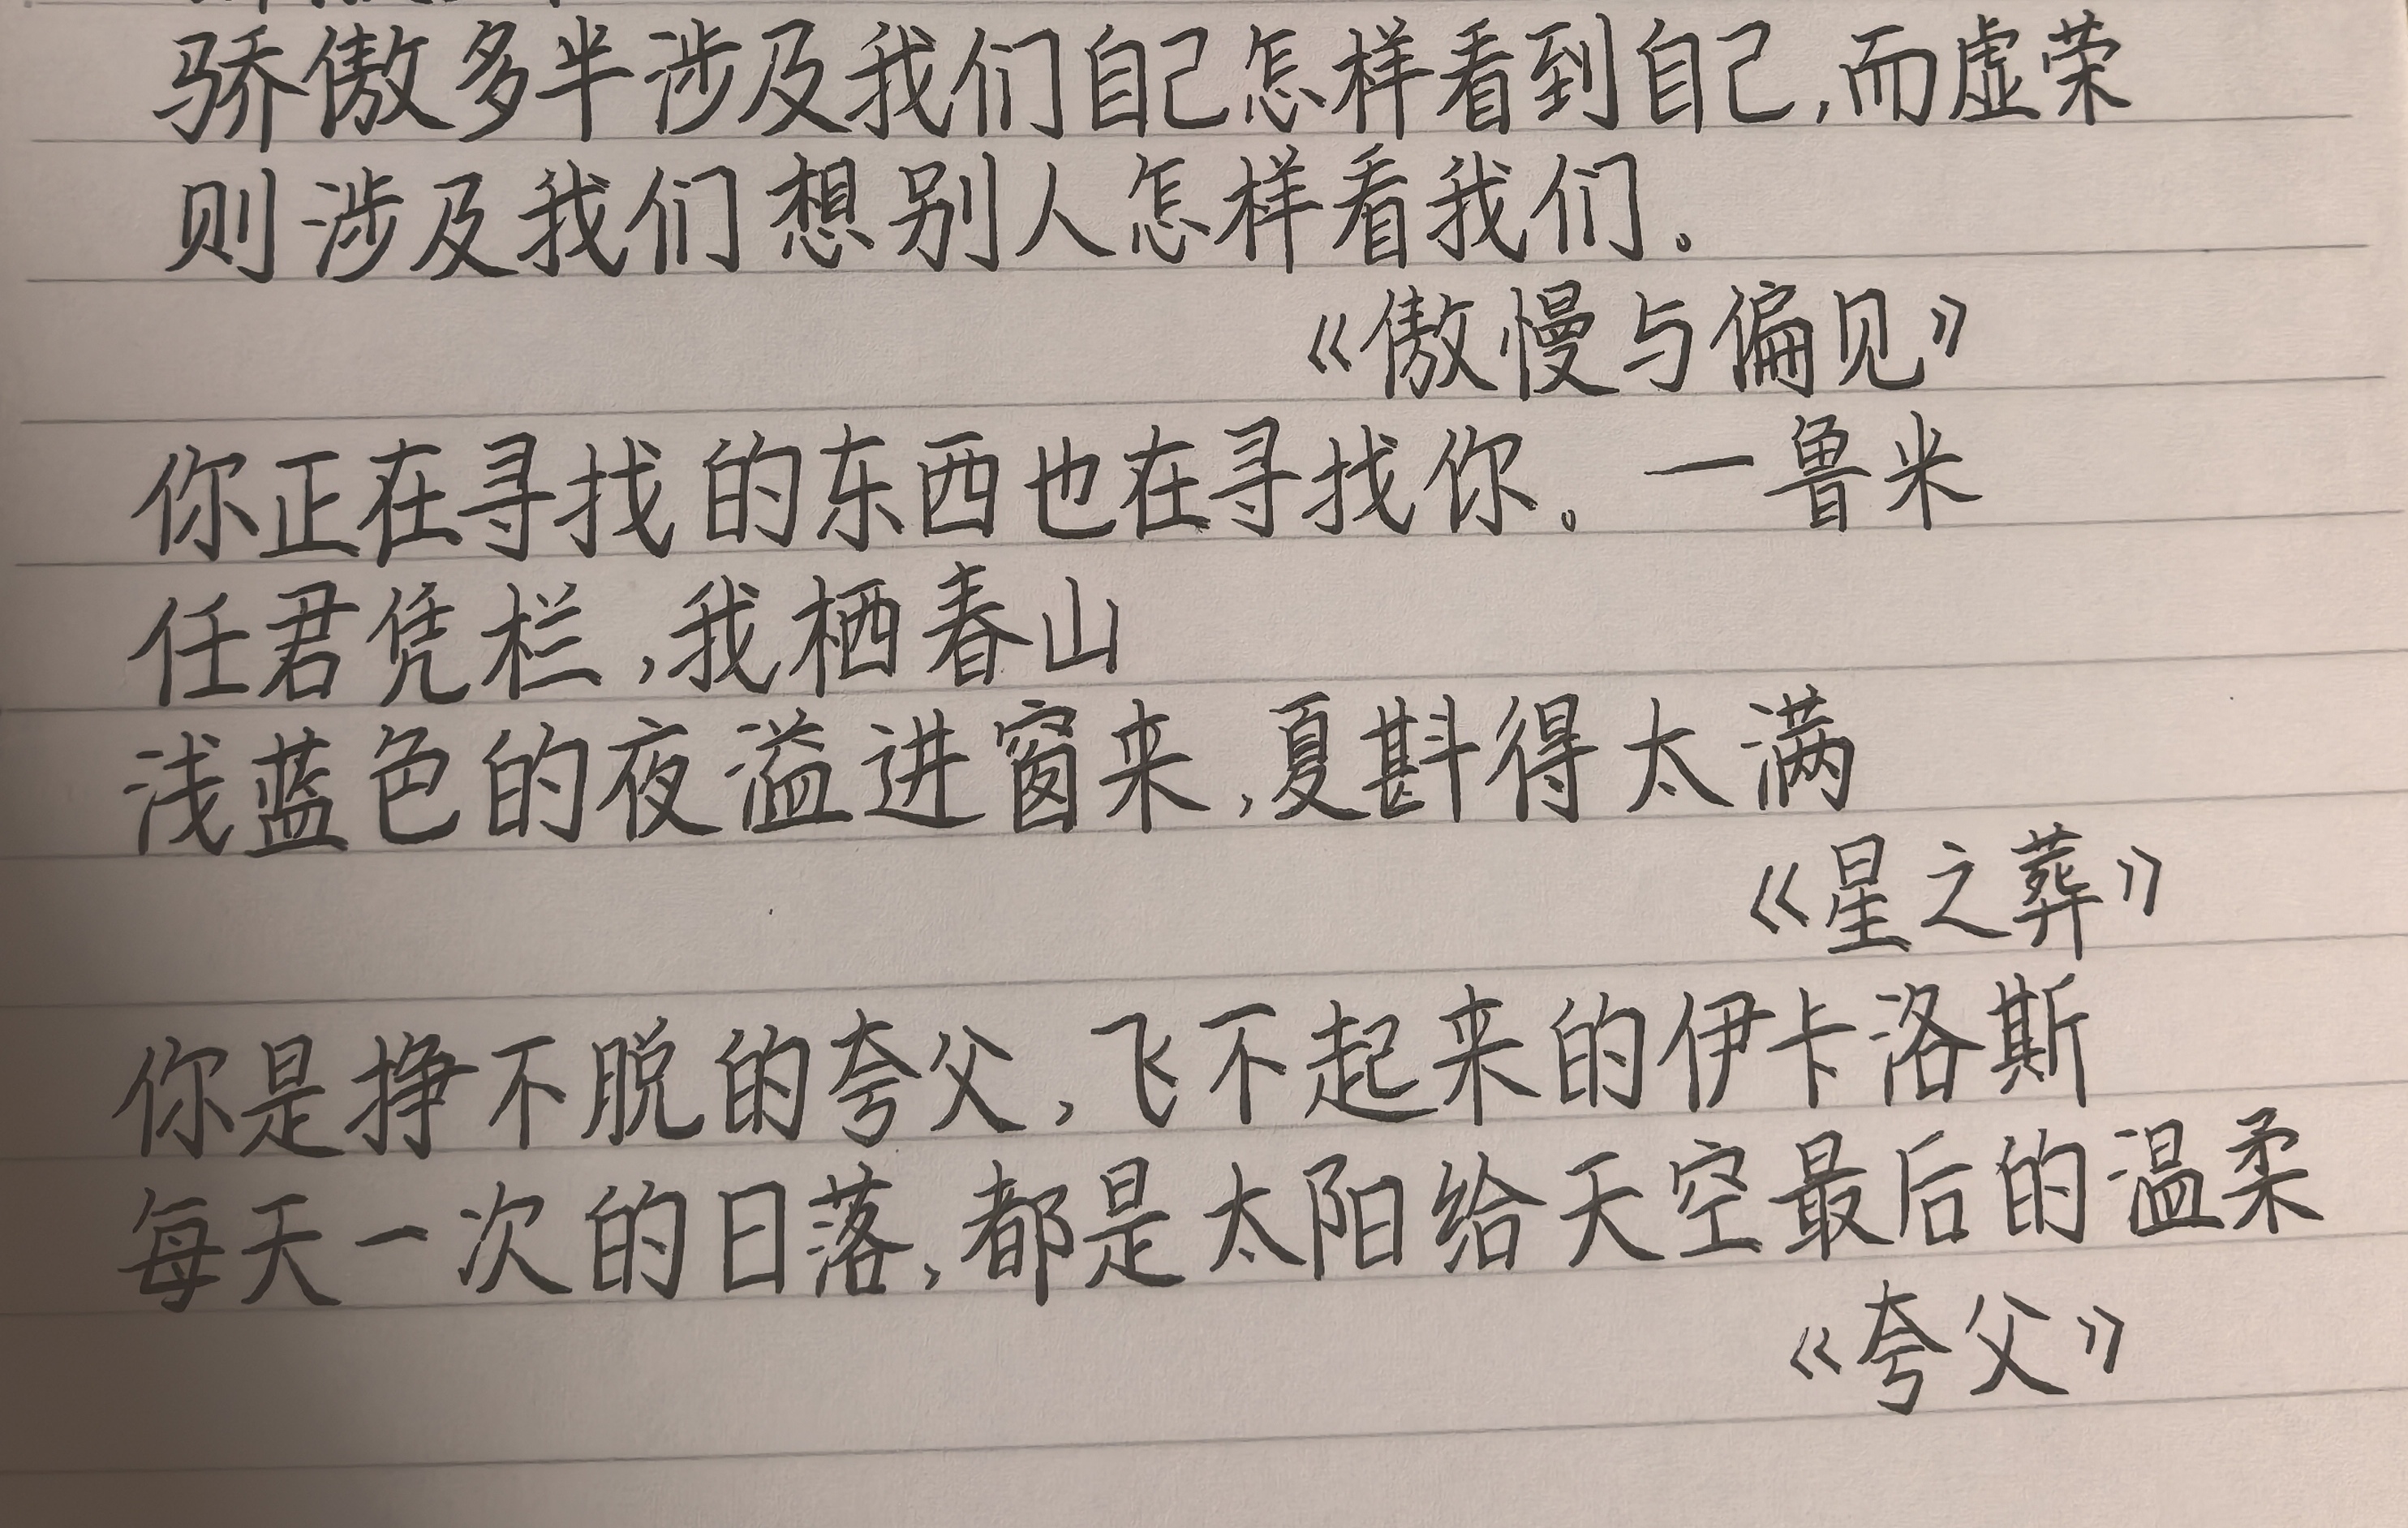 骄傲多半涉及我们自己怎样看到自己,而虚荣
则涉及我们想别人怎样看我们。
《傲慢与偏见》
你正在寻找的东西也在寻找你。—鲁米
任君凭栏,我栖春山
浅蓝色的夜溢进窗来,夏斟得太满
《星之葬》
你是挣不脱的夸父,飞不起来的伊卡洛斯
每天一次的日落,都是太阳给天空最后的温柔
《夸父》